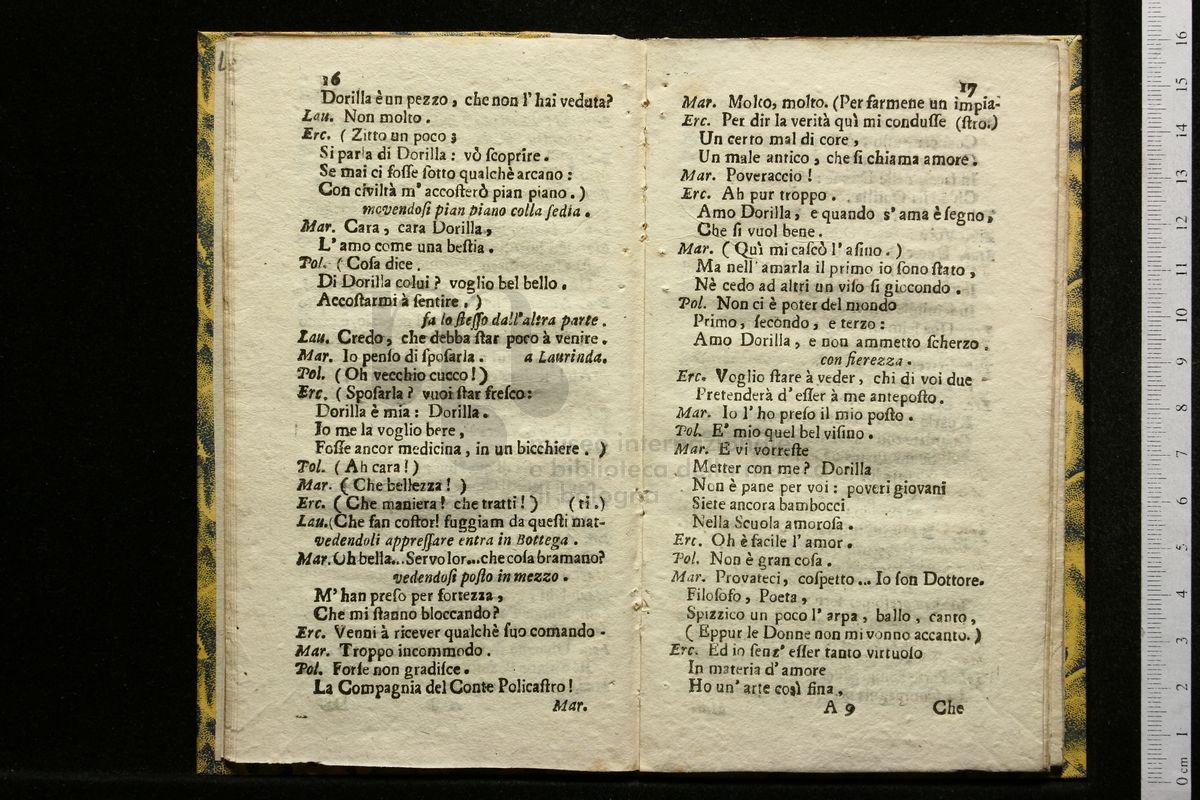 16
Dorilla è un pezzo, che non l'hai veduta?
Lau. Non molto.
Erc. (Zitto un poco;
Si parla di Dorilla: vò ſcoprire.
Se mai ci foſſe ſotto qualchè arcano:
Con civiltà m'accoſterò pian piano.)
movendoſi pian piano colla ſedia.
Mar. Cara, cara Dorilla,
L'amo come una beſtia.
Pol. (Coſa dice.
Di Dorilla colui? voglio bel bello.
Accoſtarmi à ſentire.)
fa lo ſteſſo dall'altra parte.
Lau. Credo, che debba ſtar poco à venire.
Mar. Io penſo di ſpoſarla. a Laurinda.
Pol. (Oh vecchio cucco!)
Erc. (Spoſarla? vuoi ſtar freſco:
Dorilla è mia: Dorilla.
Io me la voglio bere,
Foſſe ancor medicina, in un bicchiere.)
Pol. (Ah cara!)
Mar. (Che bellezza!)
Erc. (Che maniera! che tratti!) (ti.)
Lau. (Che fan coſtor! fuggiam da queſti mat-
vedendoli appreſſare entra in Bottega.
Mar. Oh bella... Servo lor... che coſa bramano?
vedendoſi poſto in mezzo.
M'han preſo per fortezza,
Che mi ſtanno bloccando?
Erc. Venni à ricever qualchè ſuo comando.
Mar. Troppo incommodo.
Pol. Forſe non gradiſce.
La Compagnia del Conte Policaſtro!
Mar.
17
Mar. Molto, molto. (Per farmene un impia-
Erc. Per dir la verità quì mi conduſſe (ſtro.)
Un certo mal di core,
Un male antico, che ſi chiama amore.
Mar. Poveraccio!
Erc. Ah pur troppo.
Amo Dorilla, e quando s'ama è ſegno,
Che ſi vuol bene.
Mar. (Quì mi caſcò l'aſino.)
Ma nell'amarla il primo io ſono ſtato,
Nè cedo ad altri un viſo ſi giocondo.
Pol. Non ci è poter del mondo
Primo, ſecondo, e terzo:
Amo Dorilla, e non ammetto ſcherzo.
con fierezza.
Erc. Voglio ſtare à veder, chi di voi due
Pretenderà d'eſſer à me anteposto.
Mar. Io l'ho preſo il mio poſto.
Pol. E' mio quel bel viſino.
Mar. E vi vorreſte
Metter con me? Dorilla
Non è pane per voi: poveri giovani
Siete ancora bambocci
Nella Scuola amoroſa.
Erc. Oh è facile l'amor.
Pol. Non è gran coſa.
Mar. Provateci, coſpetto... Io ſon Dottore.
Filoſofo, Poeta,
Spizzico un poco l'arpa, ballo, canto,
(Eppur le Donne non mi vonno accanto.)
Erc. Ed io ſenz'eſſer tanto virtuoſo
In materia d'amore
Ho un'arte così fina,
A 9 Che
0 cm 1 2 3 4 5 6 7 8 9 10 11 12 13 14 15 16